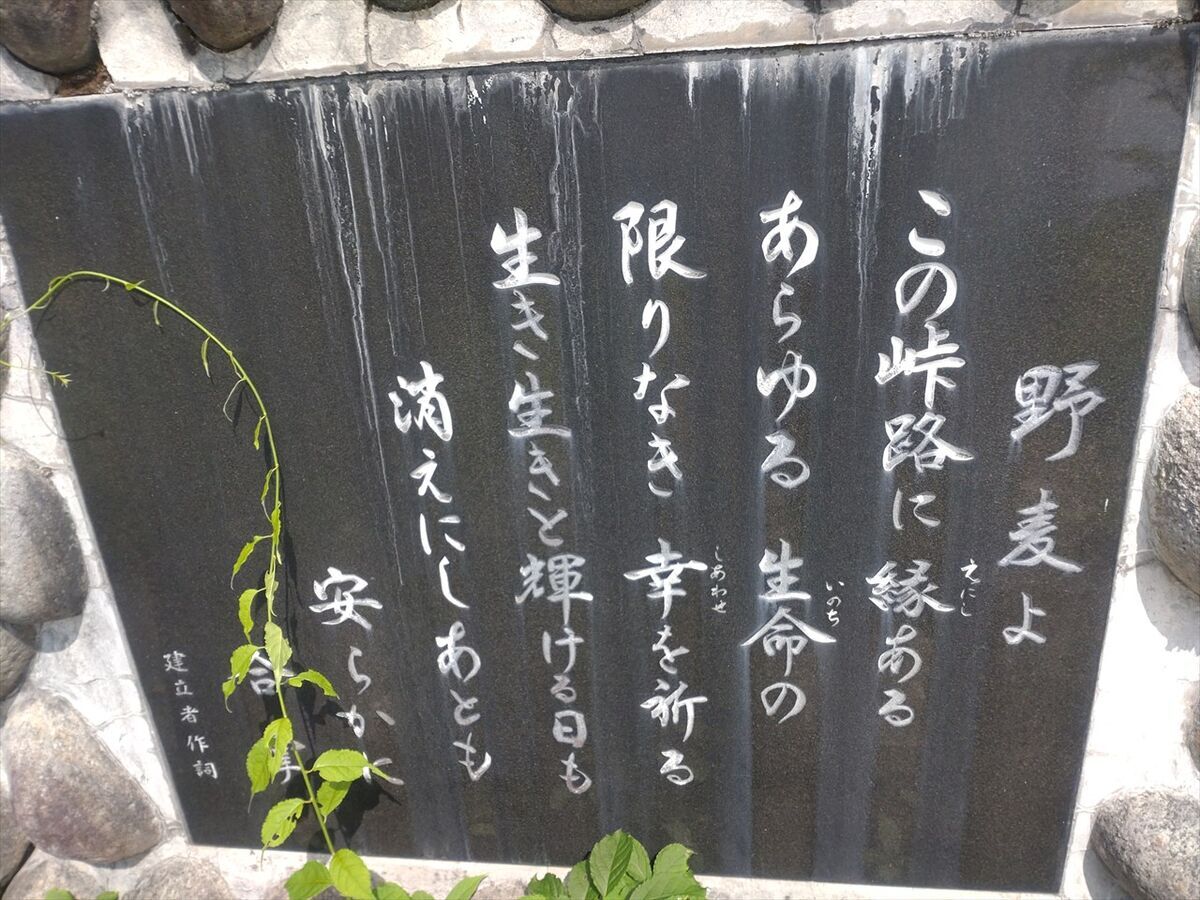 野麦よ
この峠路に縁ある
えにし
あらゆる生命の
いのち
限りなき幸を祈る
しあわせ
生き生きと輝ける日も
消えにしあとも
安らかに
合手
建立者作詞